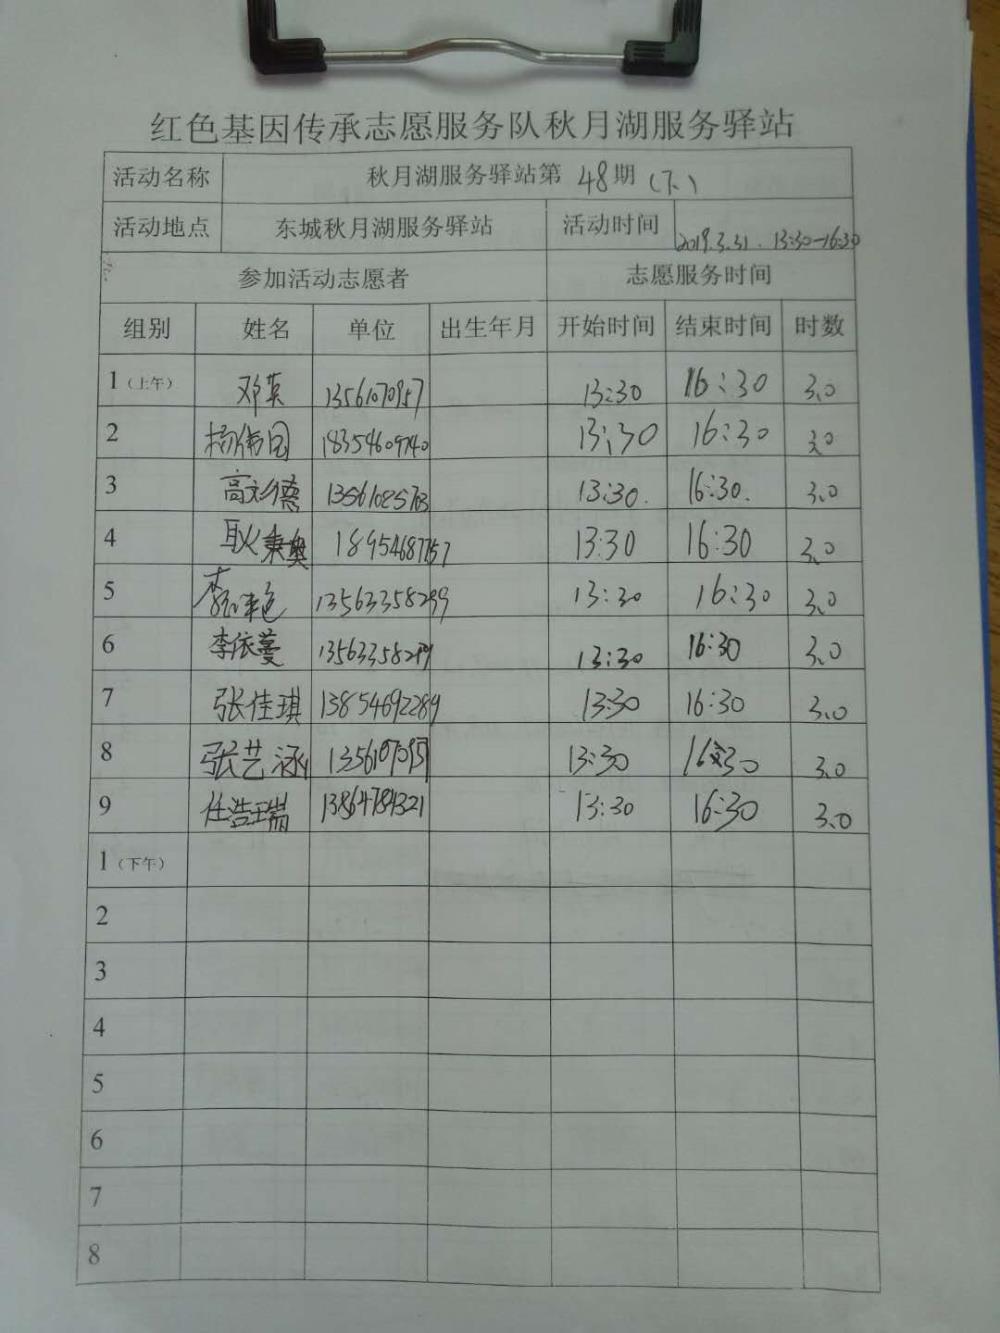 红色基因传承志愿服务队秋月湖服务驿站
活动名称 秋月湖服务驿站第 48期(下)
活动地点 东城秋月湖服务驿站 活动时间 2019.3.31. 13:30-16:30
参加活动志愿者 志愿服务时间
组别 姓名 单位 出生年月 开始时间 结束时间 时数
1(上午) 邓英 13561070957 13:30 16:30 3.0
2 杨伟国 18354609740 13:30 16:30 3.0
3 高彩德 13:30. 16:30. 3.0
4 耿 奥 13:30 16:30 3.0
5 13563358299 13:30 16:30 3.0
6 李依蔓 13563358299 13:30 16:30 3.0
7 张佳琪 13854692289 13:30 16:30 3.0
8 张艺涵 13561070957 13:30 16:30 3.0
9 任浩瑞 13864784321 13:30 16:30 3.0
1(下午)
2
3
4
5
6
7
8